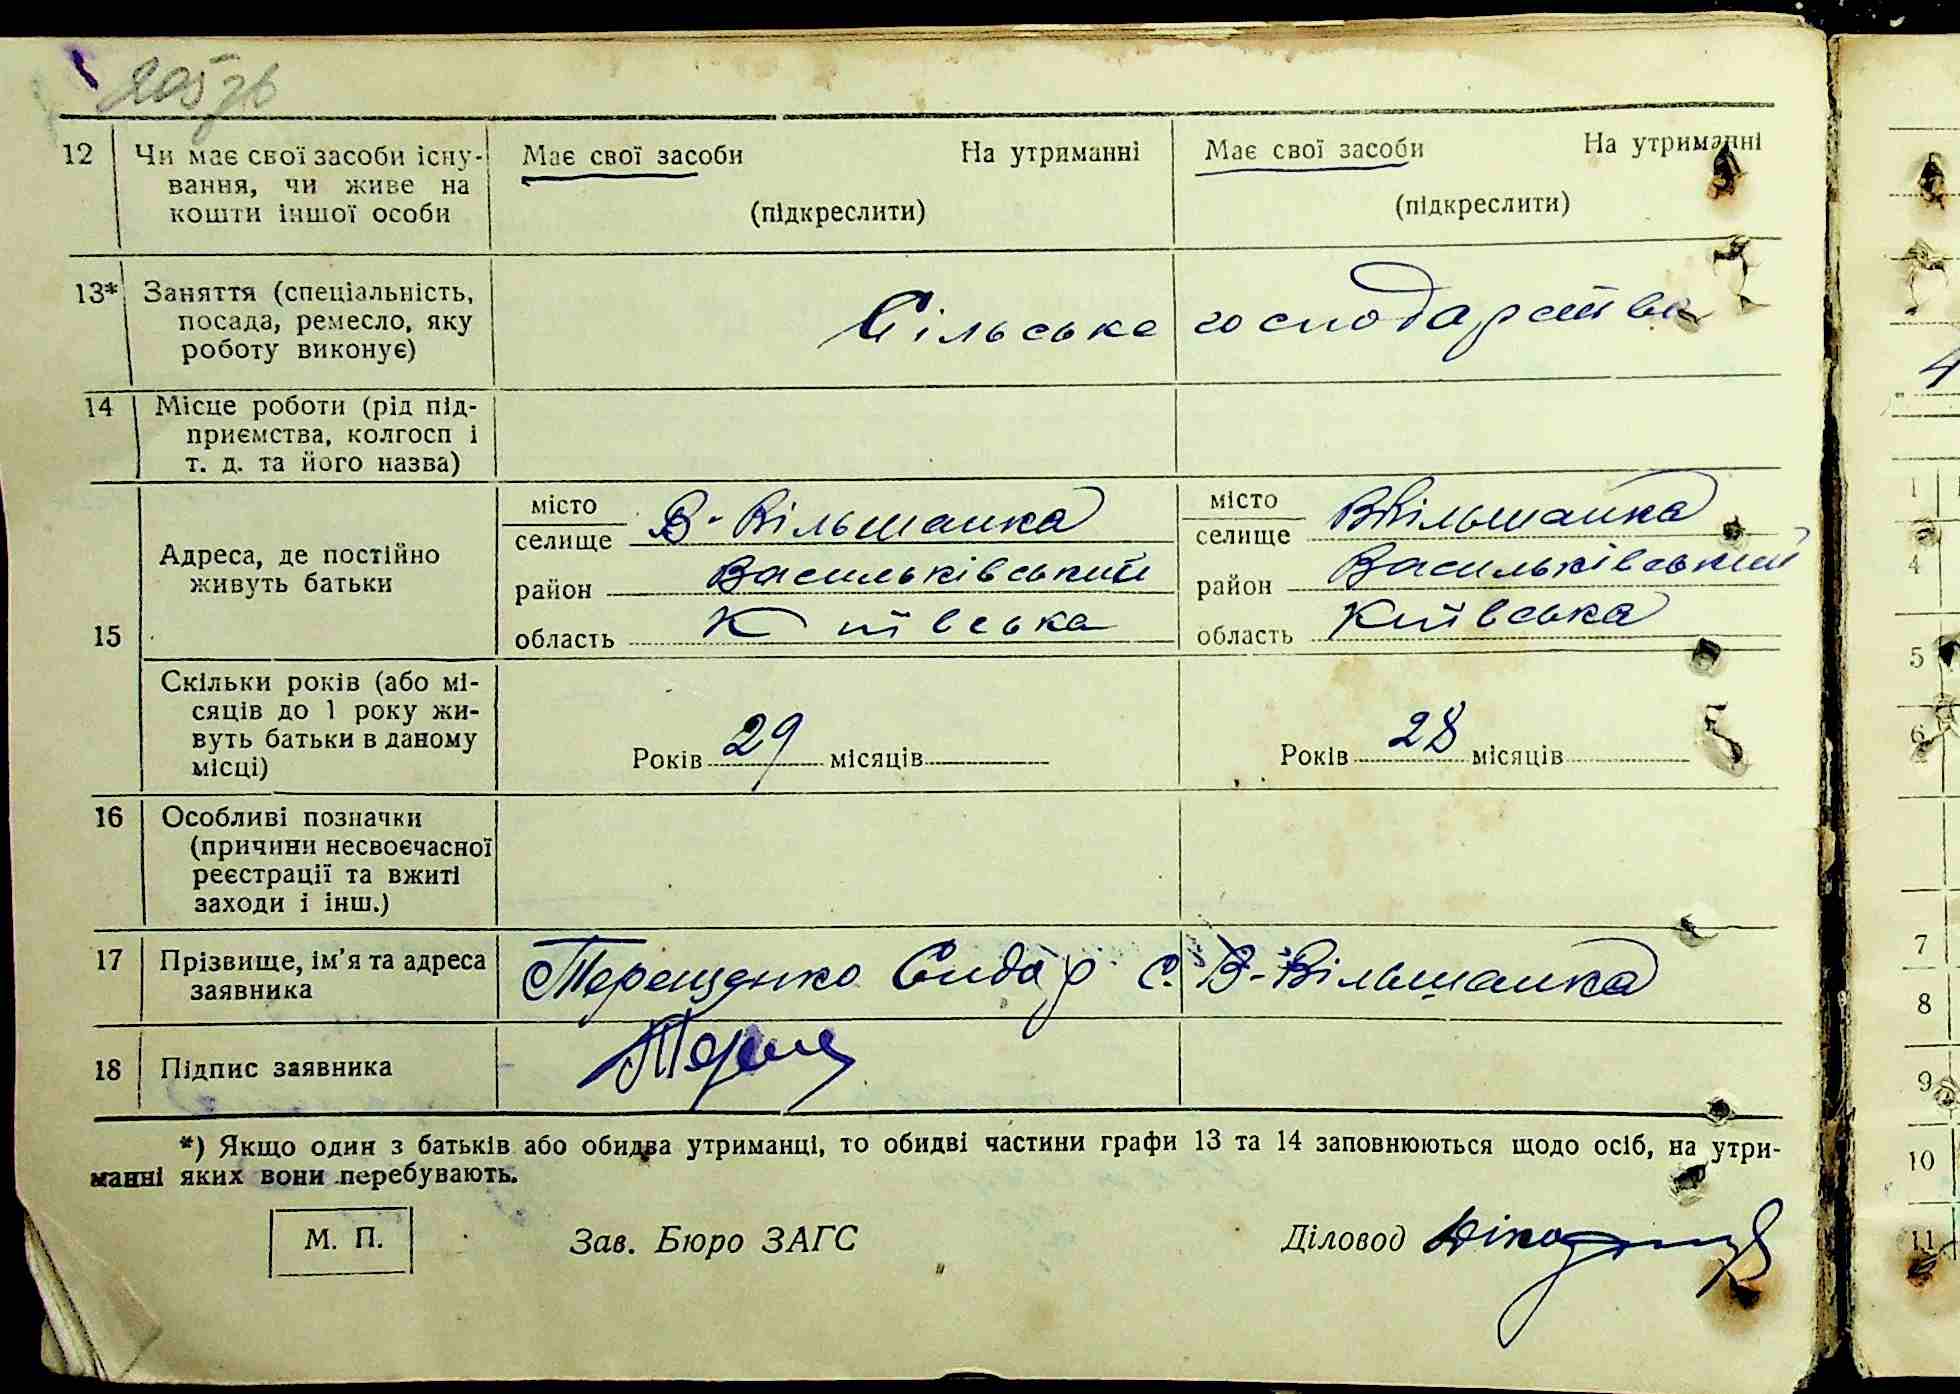 205 зв
12 Чи має свої засоби існу- Має свої засоби На утриманні Має свої засоби На утриманні
вання, чи живе на
кошти іншої особи (підкреслити) (підкреслити)
13* Заняття (спеціальність,
посада, ремесло, яку Сільське господарство
роботу виконує)
14 Місце роботи (рід під-
приємства, колгосп і
т. д. та його назва)
15 Адреса, де постійно
живуть батьки
місто
селище В-Вільшанка
район Васильківський
область Київська
місто
селище ВВільшанка
район Васильківський
область Київська
Скільки років (або мі-
сяців до 1 року жи-
вуть батьки в даному
місці)
Років 29 місяців
Років 28 місяців
16 Особливі позначки
(причини несвоєчасної
реєстрації та вжиті
заходи і інш.)
17 Прізвище, ім'я та адреса
заявника
Терещенко Сидор с. В-Вільшанка
18 Підпис заявника
*) Якщо один з батьків або обидва утриманці, то обидві частини графи 13 та 14 заповнюються щодо осіб, на утри-
манні яких вони перебувають.
М. П. Зав. Бюро ЗАГС Діловод
1
4
5
6
7
8
9
10
11